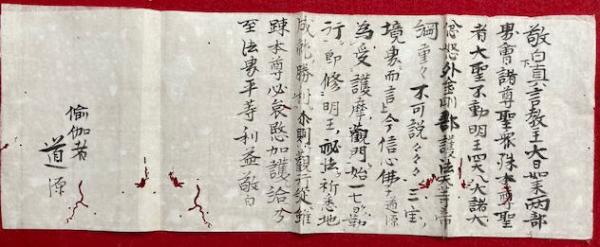 敬白真言教王大日如来両部
界會諸尊聖衆殊本尊聖
者大聖不動明王四大八大諸大
忿怒外金剛部護法天等帝
網重々不可説々々々三宝
境界而言今信心佛子道源
為受護摩觀門始一七日
行即修明王祕法祈悉地
成就勝利則觀行従雖
踈本尊必哀愍加護給乃
至法界平等利益敬白
瑜伽者
道源